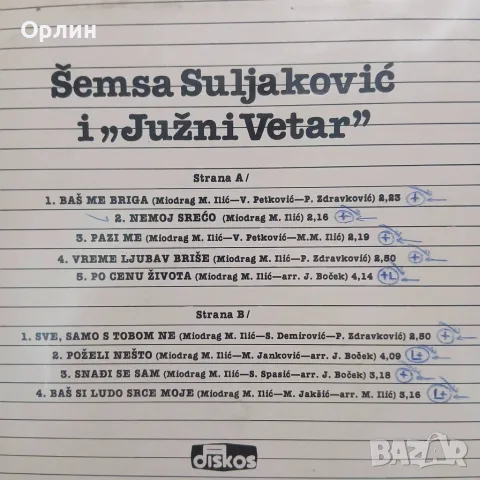 Орлин
Šemsa Suljaković
i „Južni Vetar”
Strana A/
1. BAŠ ME BRIGA (Miodrag M. Ilić—V. Petković—P. Zdravković) 2,23 +
2. NEMOJ SREĆO (Miodrag M. Ilić) 2,16 +
3. PAZI ME (Miodrag M. Ilić—V. Petković—M.M. Ilić) 2,19 +
4. VREME LJUBAV BRIŠE (Miodrag M. Ilić—P. Zdravković) 2,50 +
5. PO CENU ŽIVOTA (Miodrag M. Ilić—arr. J. Boček) 4,14 +L
Strana B/
1. SVE, SAMO S TOBOM NE (Miodrag M. Ilić—S. Demirović—P. Zdravković) 2,50 +
2. POŽELI NEŠTO (Miodrag M. Ilić—M. Janković—arr. J. Boček) 4,09 L+
3. SNAĐI SE SAM (Miodrag M. Ilić—S. Spasić—arr. J. Boček) 3,18 +
4. BAŠ SI LUDO SRCE MOJE (Miodrag M. Ilić—M. Jakšić—arr. M. Ilić) 3,16 L+
diskos
BAZAR
bazar.bg